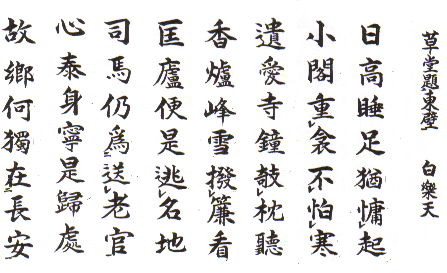 草堂題東壁 白樂天
日高睡足猶慵起
小閣重衾不怕寒
遺愛寺鐘敧枕聽
香爐峰雪撥簾看
匡廬便是逃名地
司馬仍爲送老官
心泰身寧是歸處
故鄉何獨在長安